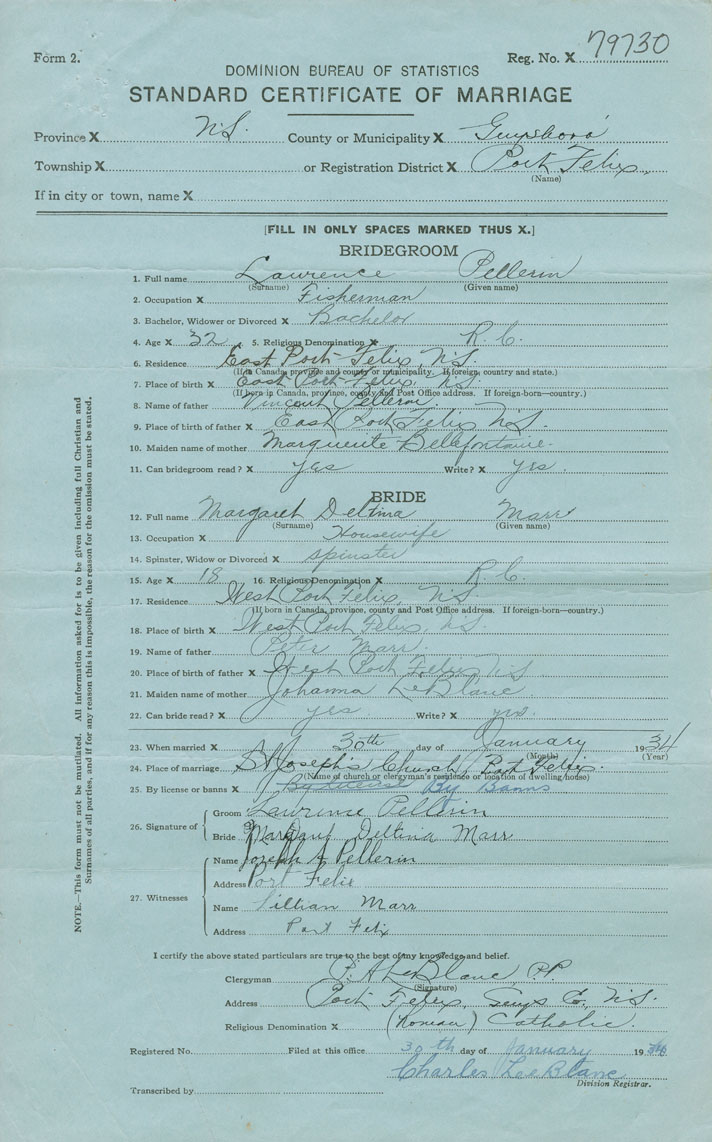 79730
Form 2. Reg. No. X
DOMINION BUREAU OF STATISTICS
STANDARD CERTIFICATE OF MARRIAGE
Province X N.S. County or Municipality X Guysboro
Township X or Registration District X Port Felix.
(Name)
If in city or town, name X
[FILL IN ONLY SPACES MARKED THUS X.]
BRIDEGROOM
1. Full name Lawrence Pellerin
(Surname) (Given name)
2. Occupation X Fisherman
3. Bachelor, Widower or Divorced X Bachelor
4. Age X 32 5. Religious Denomination X R. C.
6. Residence East Port Felix, N.S.
(If in Canada, province and county or municipality. If foreign, country and state.)
7. Place of birth X East Port Felix, N.S.
(If born in Canada, province, county and Post Office address. If foreign-born—country.)
8. Name of father Vincent Pellerin.
9. Place of birth of father X East Port Felix N.S.
10. Maiden name of mother Marguerite Bellefontaine.
11. Can bridegroom read? X yes Write? X yes.
BRIDE
12. Full name Margaret Deltina Marr
(Surname) (Given name)
13. Occupation X Housewife
14. Spinster, Widow or Divorced X spinster
15. Age X 18 16. Religious Denomination X R. C.
17. Residence West Port Felix, N.S.
(If born in Canada, province, county and Post Office address. If foreign-born—country.)
18. Place of birth X West Port Felix, N.S.
19. Name of father Peter Marr.
20. Place of birth of father X West Port Felix N.S
21. Maiden name of mother Johanna LeBlanc
22. Can bride read? X yes Write? X yes.
23. When married X 30th day of January 1934
(Month) (Year)
24. Place of marriage St Joseph's Church, Port Felix.
(Name of church or clergyman's residence or location of dwelling house)
25. By license or banns X By license By Banns
26. Signature of Groom Lawrence Pellerin
Bride Margaret Deltina Marr
27. Witnesses Name Joseph A Pellerin
Address Port Felix
Name Lillian Marr
Address Port Felix
I certify the above stated particulars are true to the best of my knowledge and belief.
Clergyman P. A LeBlanc P.P.
(Signature)
Address Port Felix, Guys Co, N.S.
Religious Denomination X (Roman) Catholic.
Registered No. Filed at this office 30th day of January 19
Charles Lee Blanc
Division Registrar.
Transcribed by
NOTE.—This form must not be mutilated. All information asked for is to be given including full Christian and
Surnames of all parties, and if for any reason this is impossible, the reason for the omission must be stated.